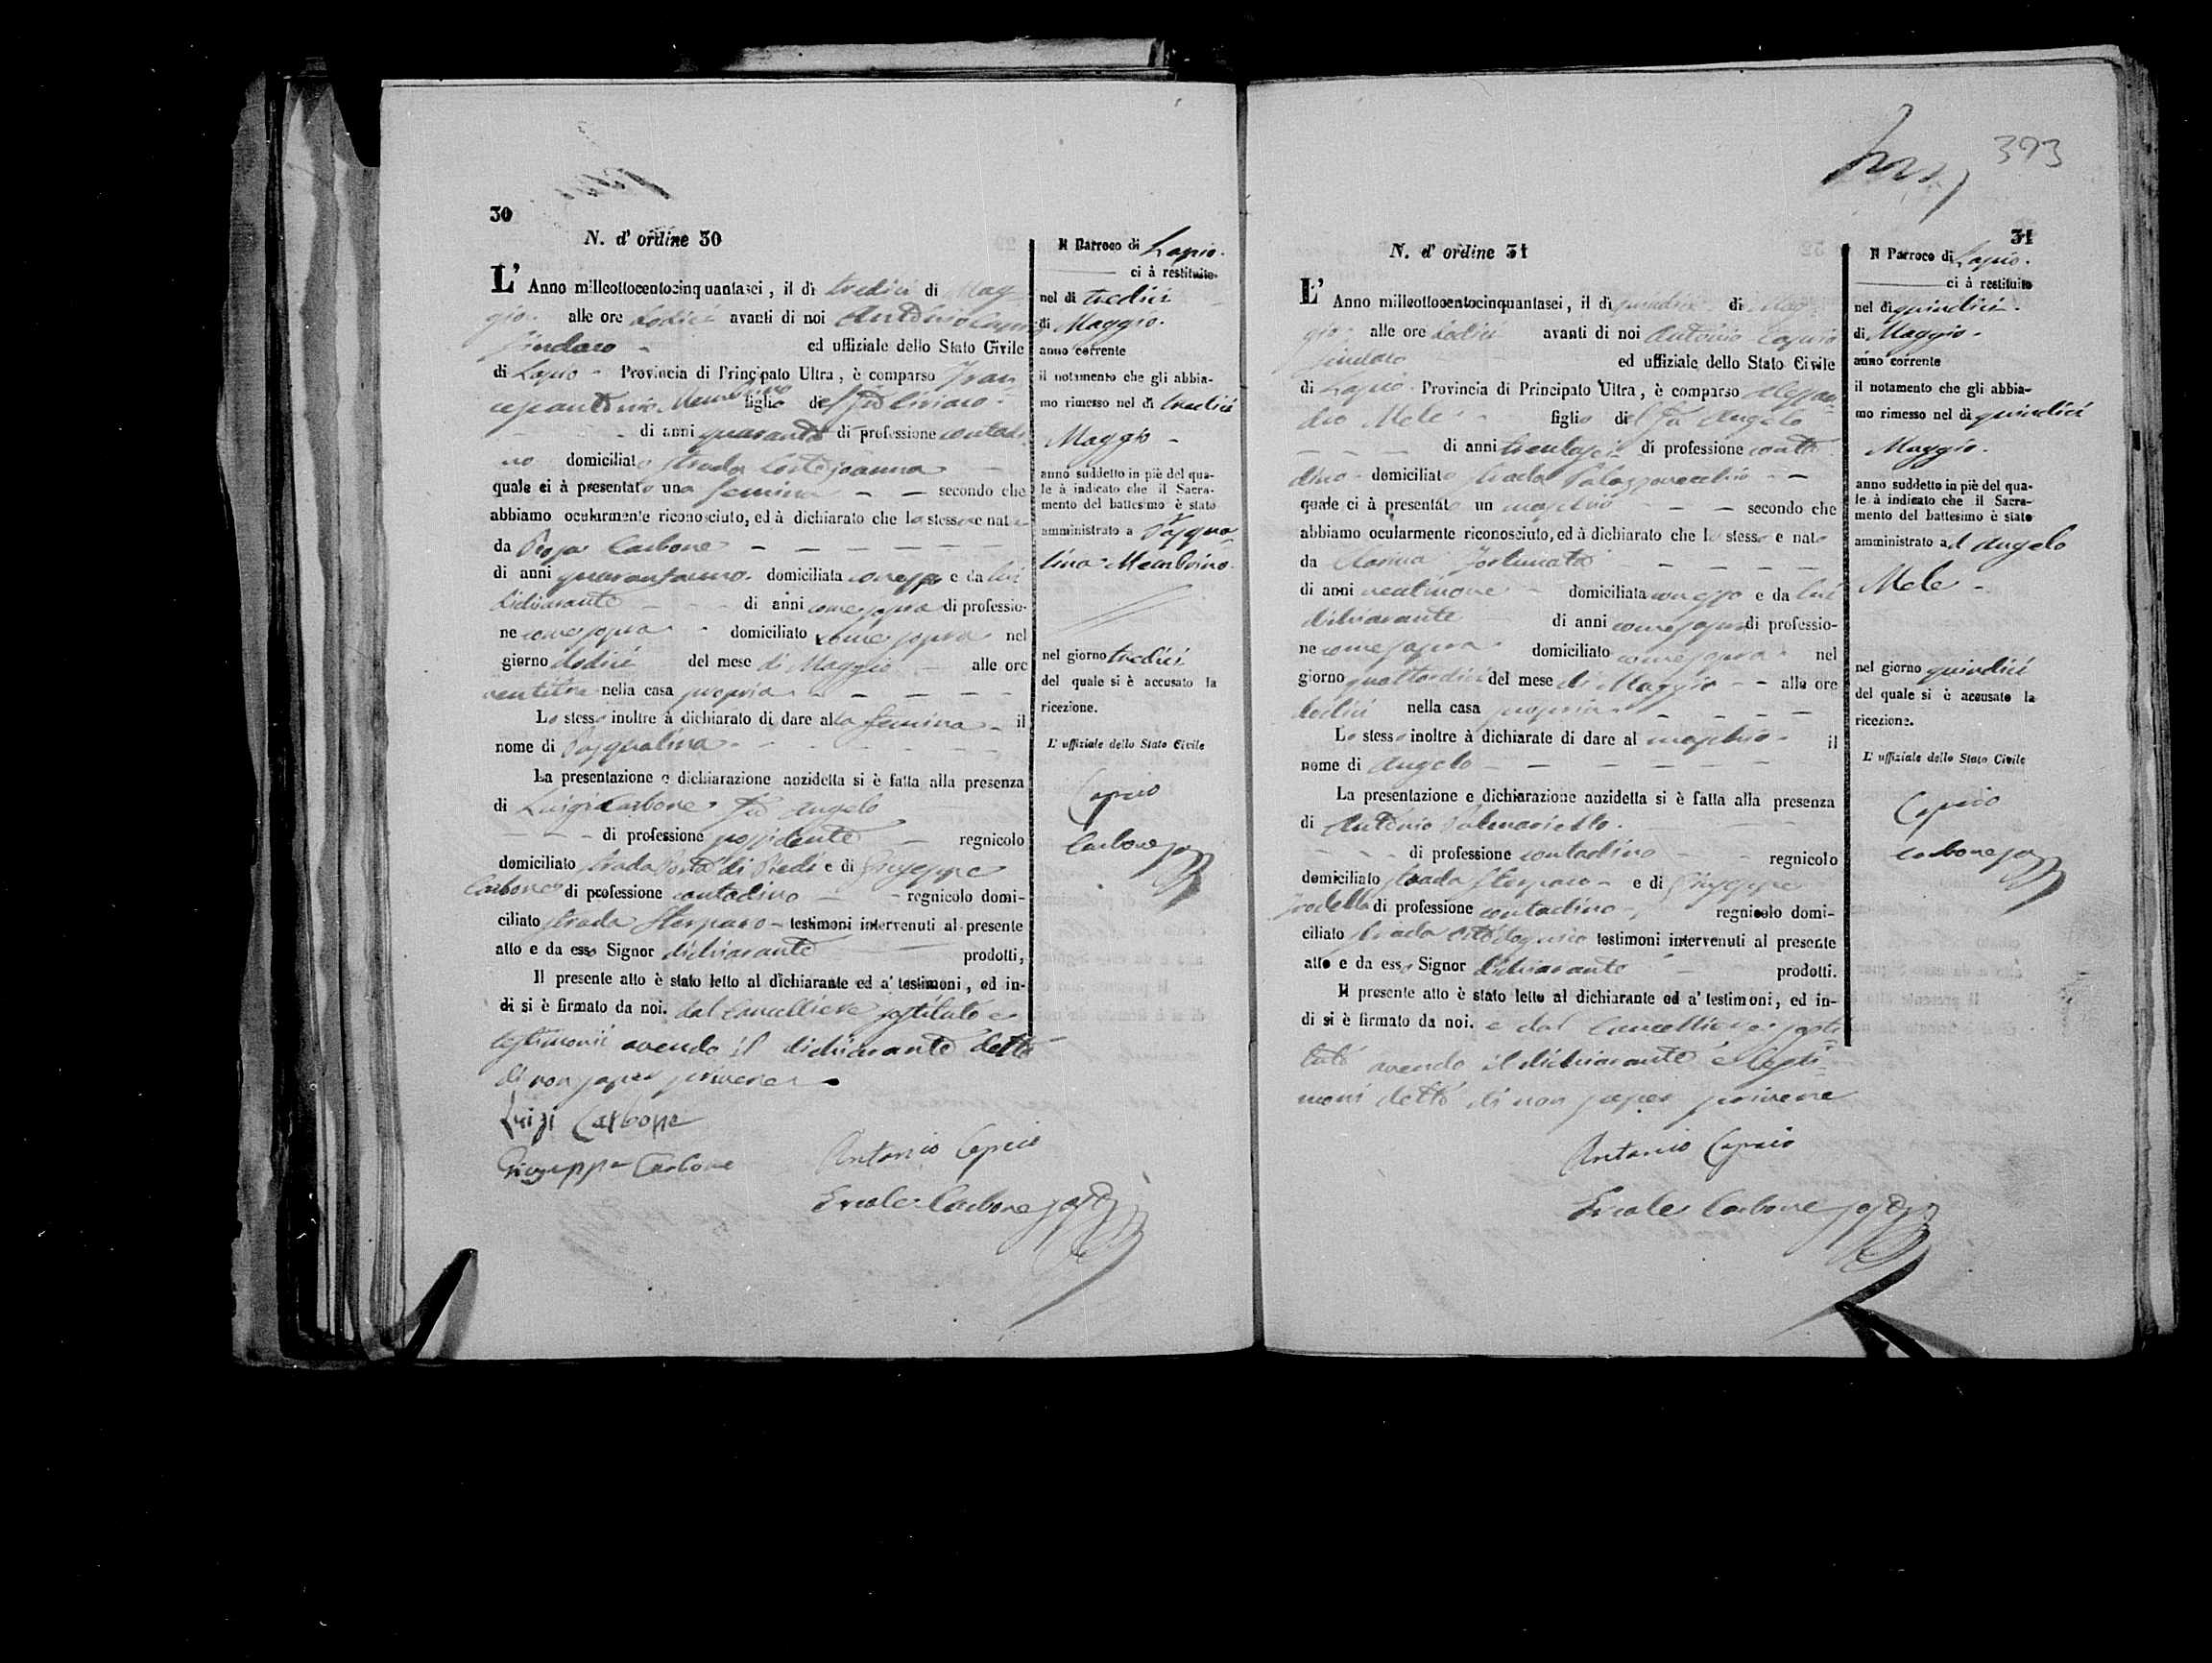 30
N. d' ordine 30
L' Anno milleottocentocinquantasei, il dì tredici di Mag
gio alle ore dodici avanti di noi Antonio Caprio
Sindaco ed uffiziale dello Stato Civile
di Lapio Provincia di Principato Ultra, è comparso Fran
cescantonio figlio del fu
di anni quaranta di professione contadi
no domiciliato strada
quale ci à presentato una femina secondo che
abbiamo ocularmente riconosciuto, ed à dichiarato che la stessa e nata
da Rosa Carbone
di anni quarantauno domiciliata come sopra e da lui
dichiarante di anni come sopra di professio-
ne come sopra domiciliato come sopra nel
giorno dodici del mese di Maggio alle ore
ventitre nella casa propria
Lo stesso inoltre à dichiarato di dare alla femina il
nome di Pasqualina
La presentazione e dichiarazione anzidetta si è fatta alla presenza
di Luigi Carbone fu Angelo
di professione possidente regnicolo
domiciliato strada di Piedi e di Giuseppe
Carbone di professione contadino regnicolo domi-
ciliato strada Sterparo testimoni intervenuti al presente
atto e da esso Signor dichiarante prodotti,
Il presente atto è stato letto al dichiarante ed a' testimoni, ed in-
di si è firmato da noi. dal Cancelliere sostituto e
testimonii avendo il dichiarante detto
di non saper scrivere
Luigi Carbone
Giuseppe Carbone Antonio Caprio
Ercole Carbone sosto
Il Parroco di Lapio.
ci à restituito
nel dì tredici
di Maggio.
anno corrente
il notamento che gli abbia-
mo rimesso nel dì tredici
Maggio
anno suddetto in piè del qua-
le à indicato che il Sacra-
mento del battesimo è stato
amministrato a Pasqua
lina
nel giorno tredici
del quale si è accusato la
ricezione.
L' uffiziale dello Stato Civile
Caprio
Carbone so
393
31
N. d' ordine 31
L' Anno milleottocentocinquantasei, il dì quindici di Mag
gio alle ore dodici avanti di noi Antonio Caprio
Sindaco ed uffiziale dello Stato Civile
di Lapio Provincia di Principato Ultra, è comparso Alessan
dro Mele figlio del fu Angelo
di anni trentasei di professione conta
dino domiciliato strada Palazzovecchio
quale ci à presentato un maschio secondo che
abbiamo ocularmente riconosciuto, ed à dichiarato che lo stesso e nato
da Fortunato
di anni ventinove domiciliata come sopra e da lui
dichiarante di anni come sopra di professio-
ne come sopra domiciliato come sopra nel
giorno quattordici del mese di Maggio alle ore
dodici nella casa propria
Lo stesso inoltre à dichiarato di dare al maschio il
nome di Angelo
La presentazione e dichiarazione anzidetta si è fatta alla presenza
di Antonio
di professione contadino regnicolo
domiciliato strada Sterparo e di Giuseppe
di professione contadino regnicolo domi-
ciliato strada testimoni intervenuti al presente
atto e da esso Signor dichiarante prodotti.
Il presente atto è stato letto al dichiarante ed a' testimoni, ed in-
di si è firmato da noi. e dal Cancelliere sosti
tuto avendo il dichiarante e testi
moni detto di non saper scrivere
Antonio Caprio
Ercole Carbone sosto
Il Parroco di Lapio.
ci à restituito
nel dì quindici.
di Maggio.
anno corrente
il notamento che gli abbia-
mo rimesso nel dì quindici
Maggio.
anno suddetto in piè del qua-
le à indicato che il Sacra-
mento del battesimo è stato
amministrato ad Angelo
Mele
nel giorno quindici
del quale si è accusato la
ricezione.
L' uffiziale dello Stato Civile
Caprio
Carbone so